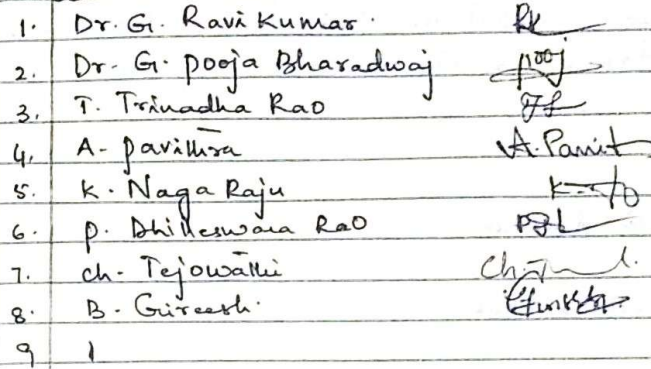 1. Dr. G. Ravi Kumar. RK
2. Dr. G. Pooja Bharadwaj pooj
3. T. Trinadha Rao
4. A. Pavithra A. Pavit
5. K. Naga Raju
6. P. Dhilleswara Rao
7. Ch. Tejowathi
8. B. Gireesh.
9 1